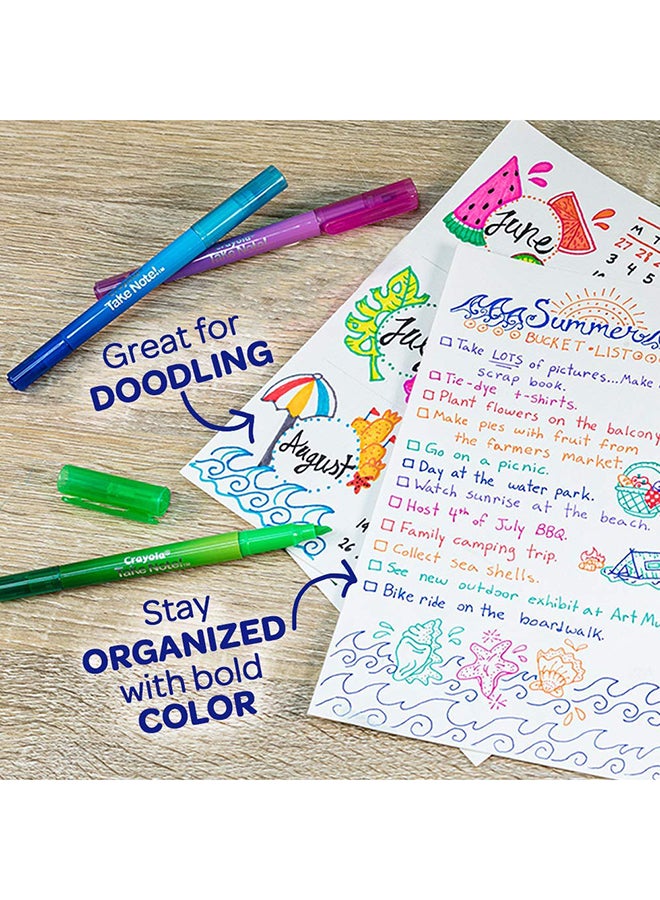 Take Note!™
Crayola
Take Note!
Great for
DOODLING
June
M T
27 28
3 4 5
August
Summer
BUCKET • LIST
Take LOTS of pictures...Make
scrap book.
Tie-dye t-shirts.
Plant flowers on the balcony
Make pies with fruit from
the farmers market.
Go on a picnic.
Day at the water park.
Watch sunrise at the beach.
Host 4th of July BBQ.
Family camping trip.
Collect sea shells.
See new outdoor exhibit at Art Mu
Bike ride on the boardwalk.
26
Crayola®
Take Note!™
Stay
ORGANIZED
with bold
COLOR